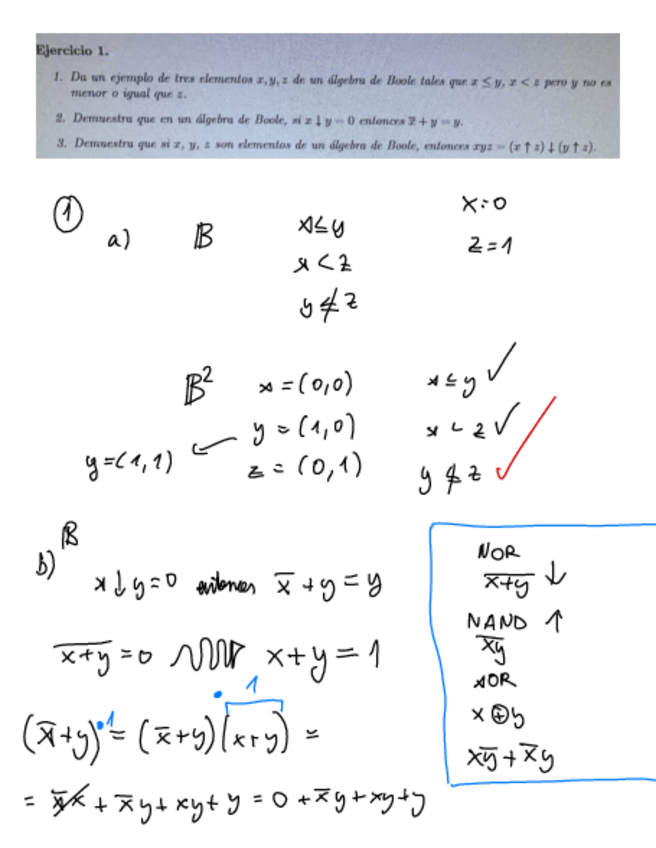 Ejercicio 1.
1. Da un ejemplo de tres elementos x, y, z de un álgebra de Boole tales que x ≤ y, x < z pero y no es
menor o igual que z.
2. Demuestra que en un álgebra de Boole, si x ↓ y = 0 entonces x̅ + y = y.
3. Demuestra que si x, y, z son elementos de un álgebra de Boole, entonces xyz = (x ↑ z) ↓ (y ↑ z).
① a) 𝔹 x≤y x=0
x<z z=1
y≰z
𝔹² x=(0,0) x≤y ✓
y=(1,0) x<z ✓
y=(1,1) z=(0,1) y≰z ✓
b) 𝔹
x↓y=0 entonces x̅+y=y
x+y̅=0 x+y=1
1
(x̅+y)·1=(x̅+y)(x+y)=
= x̅x + x̅y+xy+y = 0+x̅y+xy+y
NOR
x+y̅ ↓
NAND ↑
xy̅
XOR
x⊕y
xy̅+x̅y